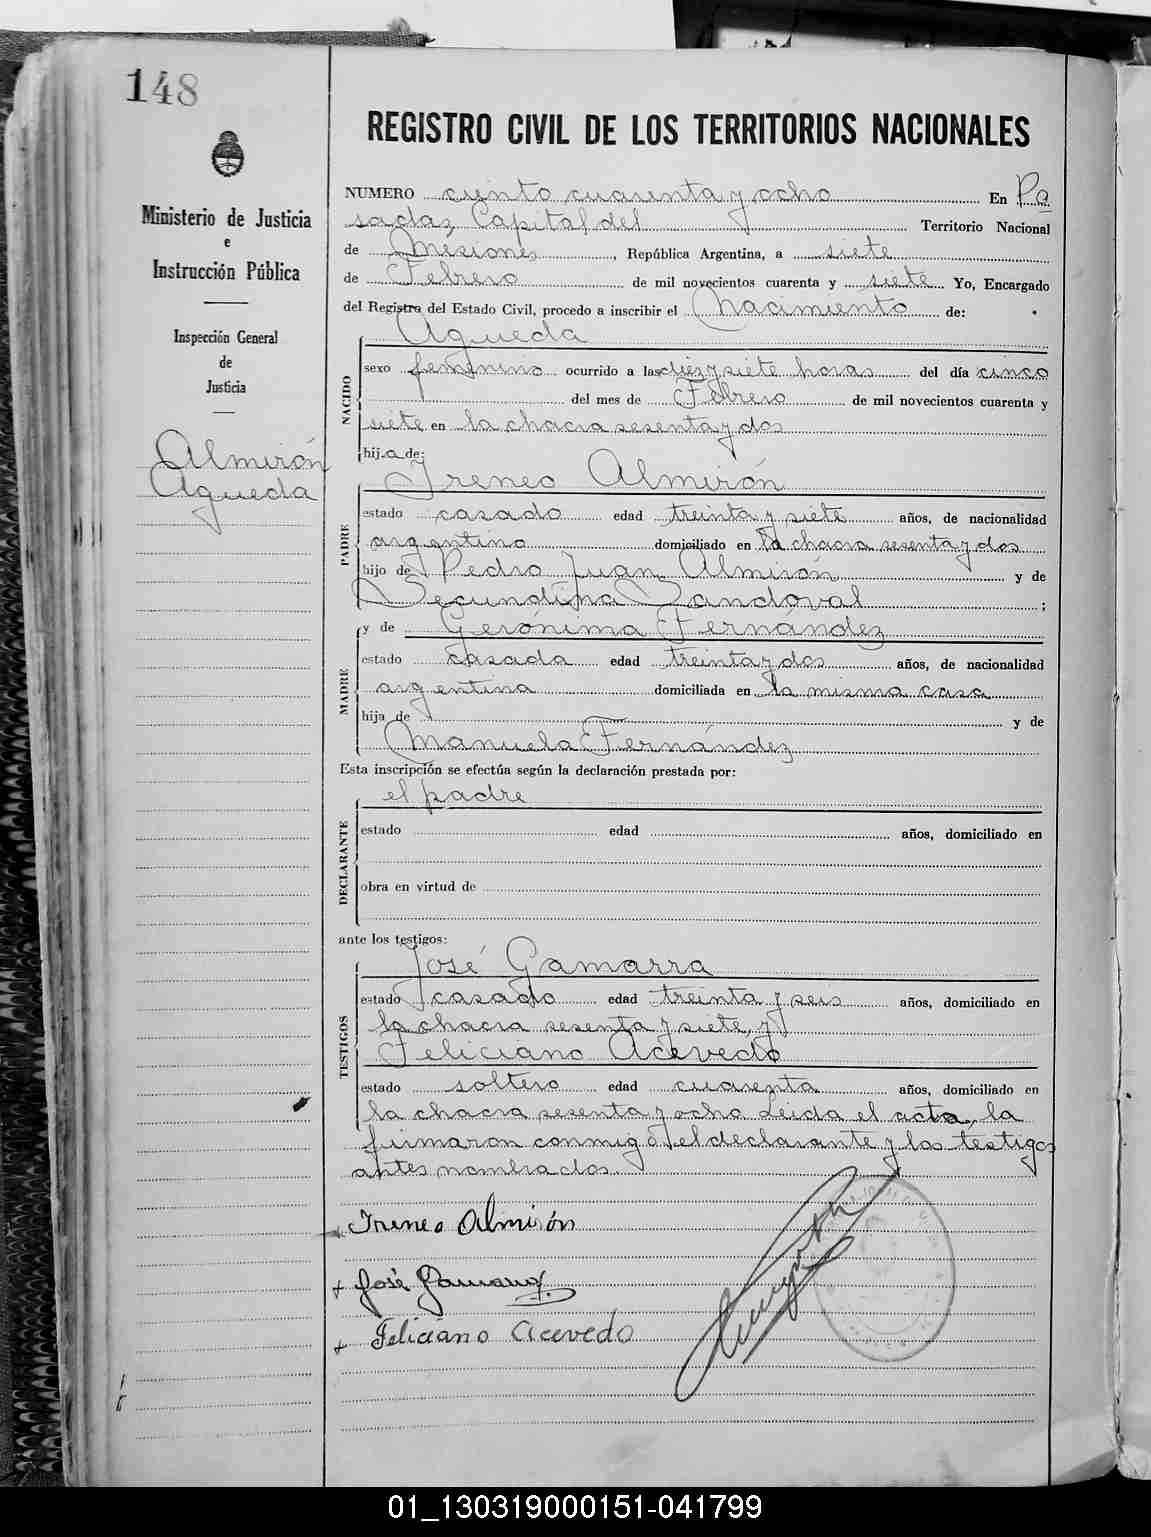 148
Ministerio de Justicia
e
Instrucción Pública
Inspección General
de
Justicia
Almirón
Agueda
REGISTRO CIVIL DE LOS TERRITORIOS NACIONALES
NUMERO ciento cuarenta y ocho En Po
sadas, Capital del Territorio Nacional
de Misiones, República Argentina, a siete
de Febrero de mil novecientos cuarenta y siete Yo, Encargado
del Registro del Estado Civil, procedo a inscribir el Nacimiento de:
Agueda
NACIDO
sexo femenino ocurrido a las diez y siete horas del día cinco
del mes de Febrero de mil novecientos cuarenta y
siete en la chacra sesenta y dos
hija de:
Ireneo Almirón
PADRE
estado casado edad treinta y siete años, de nacionalidad
argentino domiciliado en la chacra sesenta y dos
hijo de Pedro Juan Almirón y de
Secundina Sandoval ;
y de Gerónima Fernández
MADRE
estado casada edad treinta y dos años, de nacionalidad
argentina domiciliada en la misma casa
hija de y de
Manuela Fernández
Esta inscripción se efectúa según la declaración prestada por:
el padre
DECLARANTE
estado edad años, domiciliado en
obra en virtud de
ante los testigos:
José Gamarra
TESTIGOS
estado casado edad treinta y seis años, domiciliado en
la chacra sesenta y siete, y
Feliciano Acevedo
estado soltero edad cuarenta años, domiciliado en
la chacra sesenta y ocho Leida el acta, la
firmaron conmigo, el declarante y los testigos
antes nombrados.
Ireneo Almirón
+ José Gamarra
+ Feliciano Acevedo
01_130319000151-041799